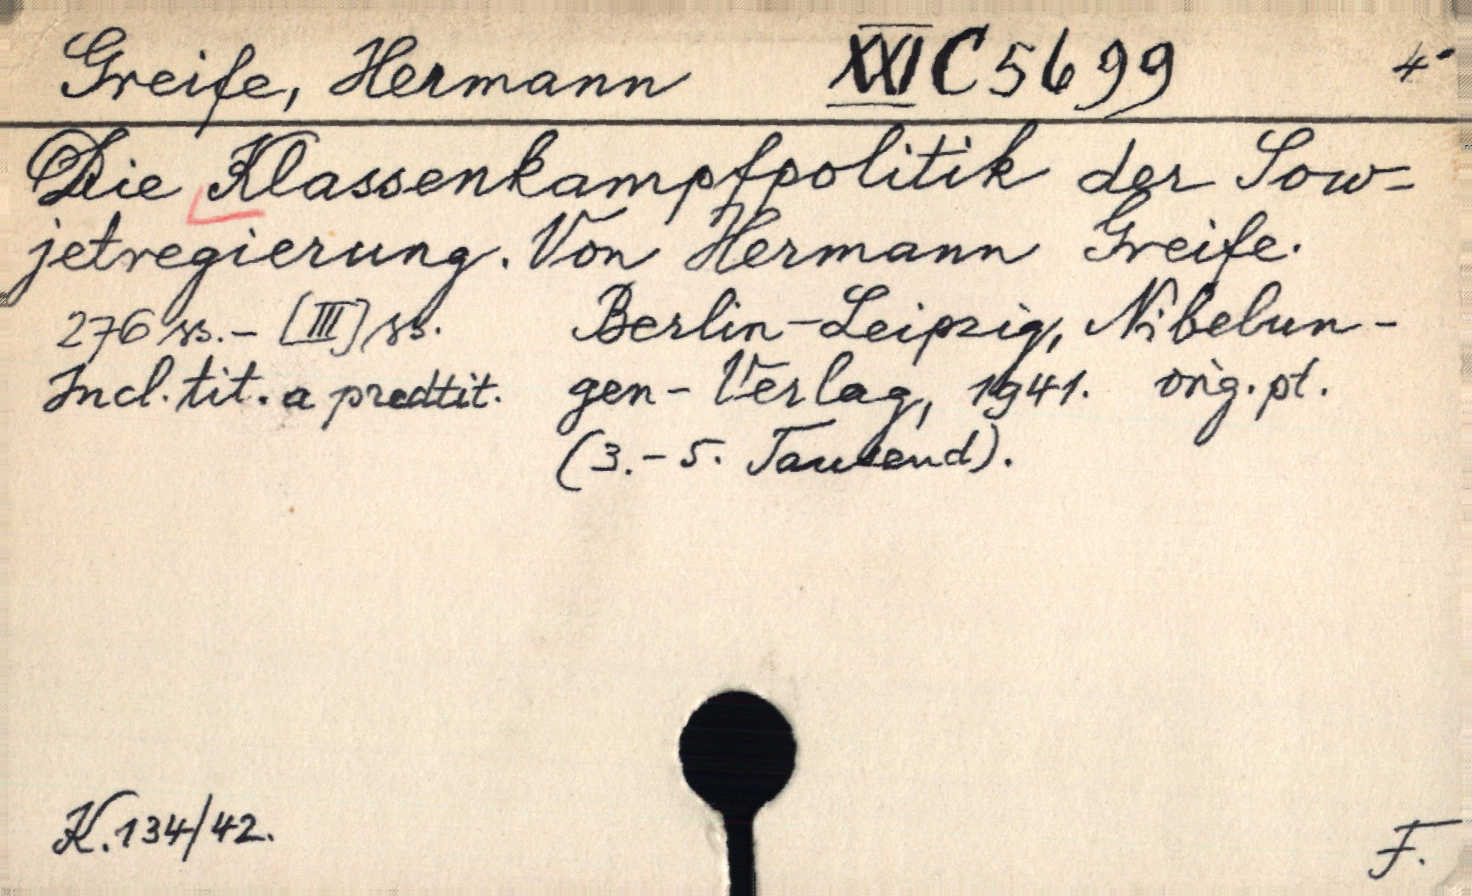 Greife, Hermann XXI C 5699 4°
Die Klassenkampfpolitik der Sow-
jetregierung. Von Hermann Greife.
276 ss. - [III] ss. Berlin-Leipzig, Nibelun-
Incl. tit. a predtit. gen-Verlag, 1941. orig. pt.
(3.-5. Tausend).
K. 134/42. F.